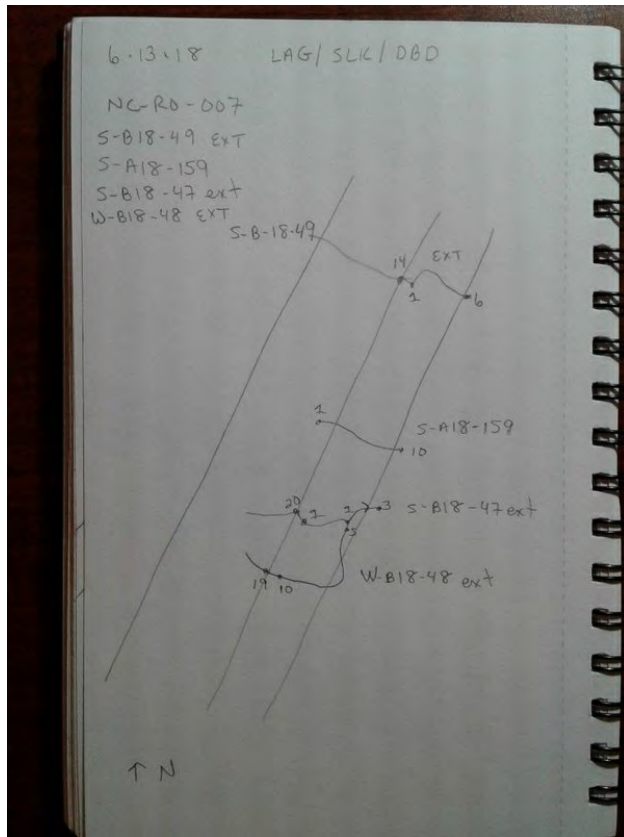 6.13.18 LAG/SLK/DBD
NC-RD-007
S-B18-49 EXT
S-A18-159
S-B18-47 ext
W-B18-48 EXT
S-B-18-49
14 EXT
1 6
1
S-A18-159
10
20 1 2 3 S-B18-47 ext
5
19 10 W-B18-48 ext
↑ N